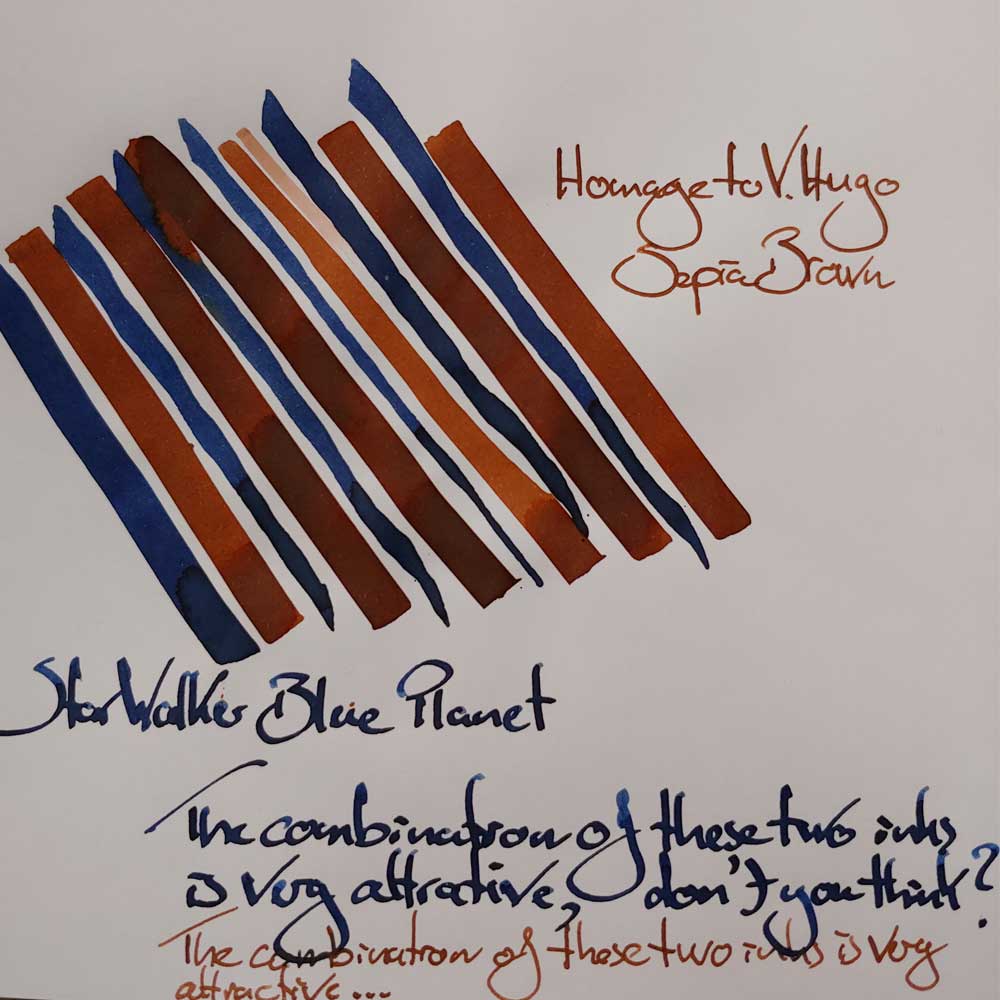 Homage to V. Hugo
Sepia Brown
StarWalker Blue Planet
The combination of these two inks
is very attractive, don't you think?
The combination of these two inks is very
attractive...